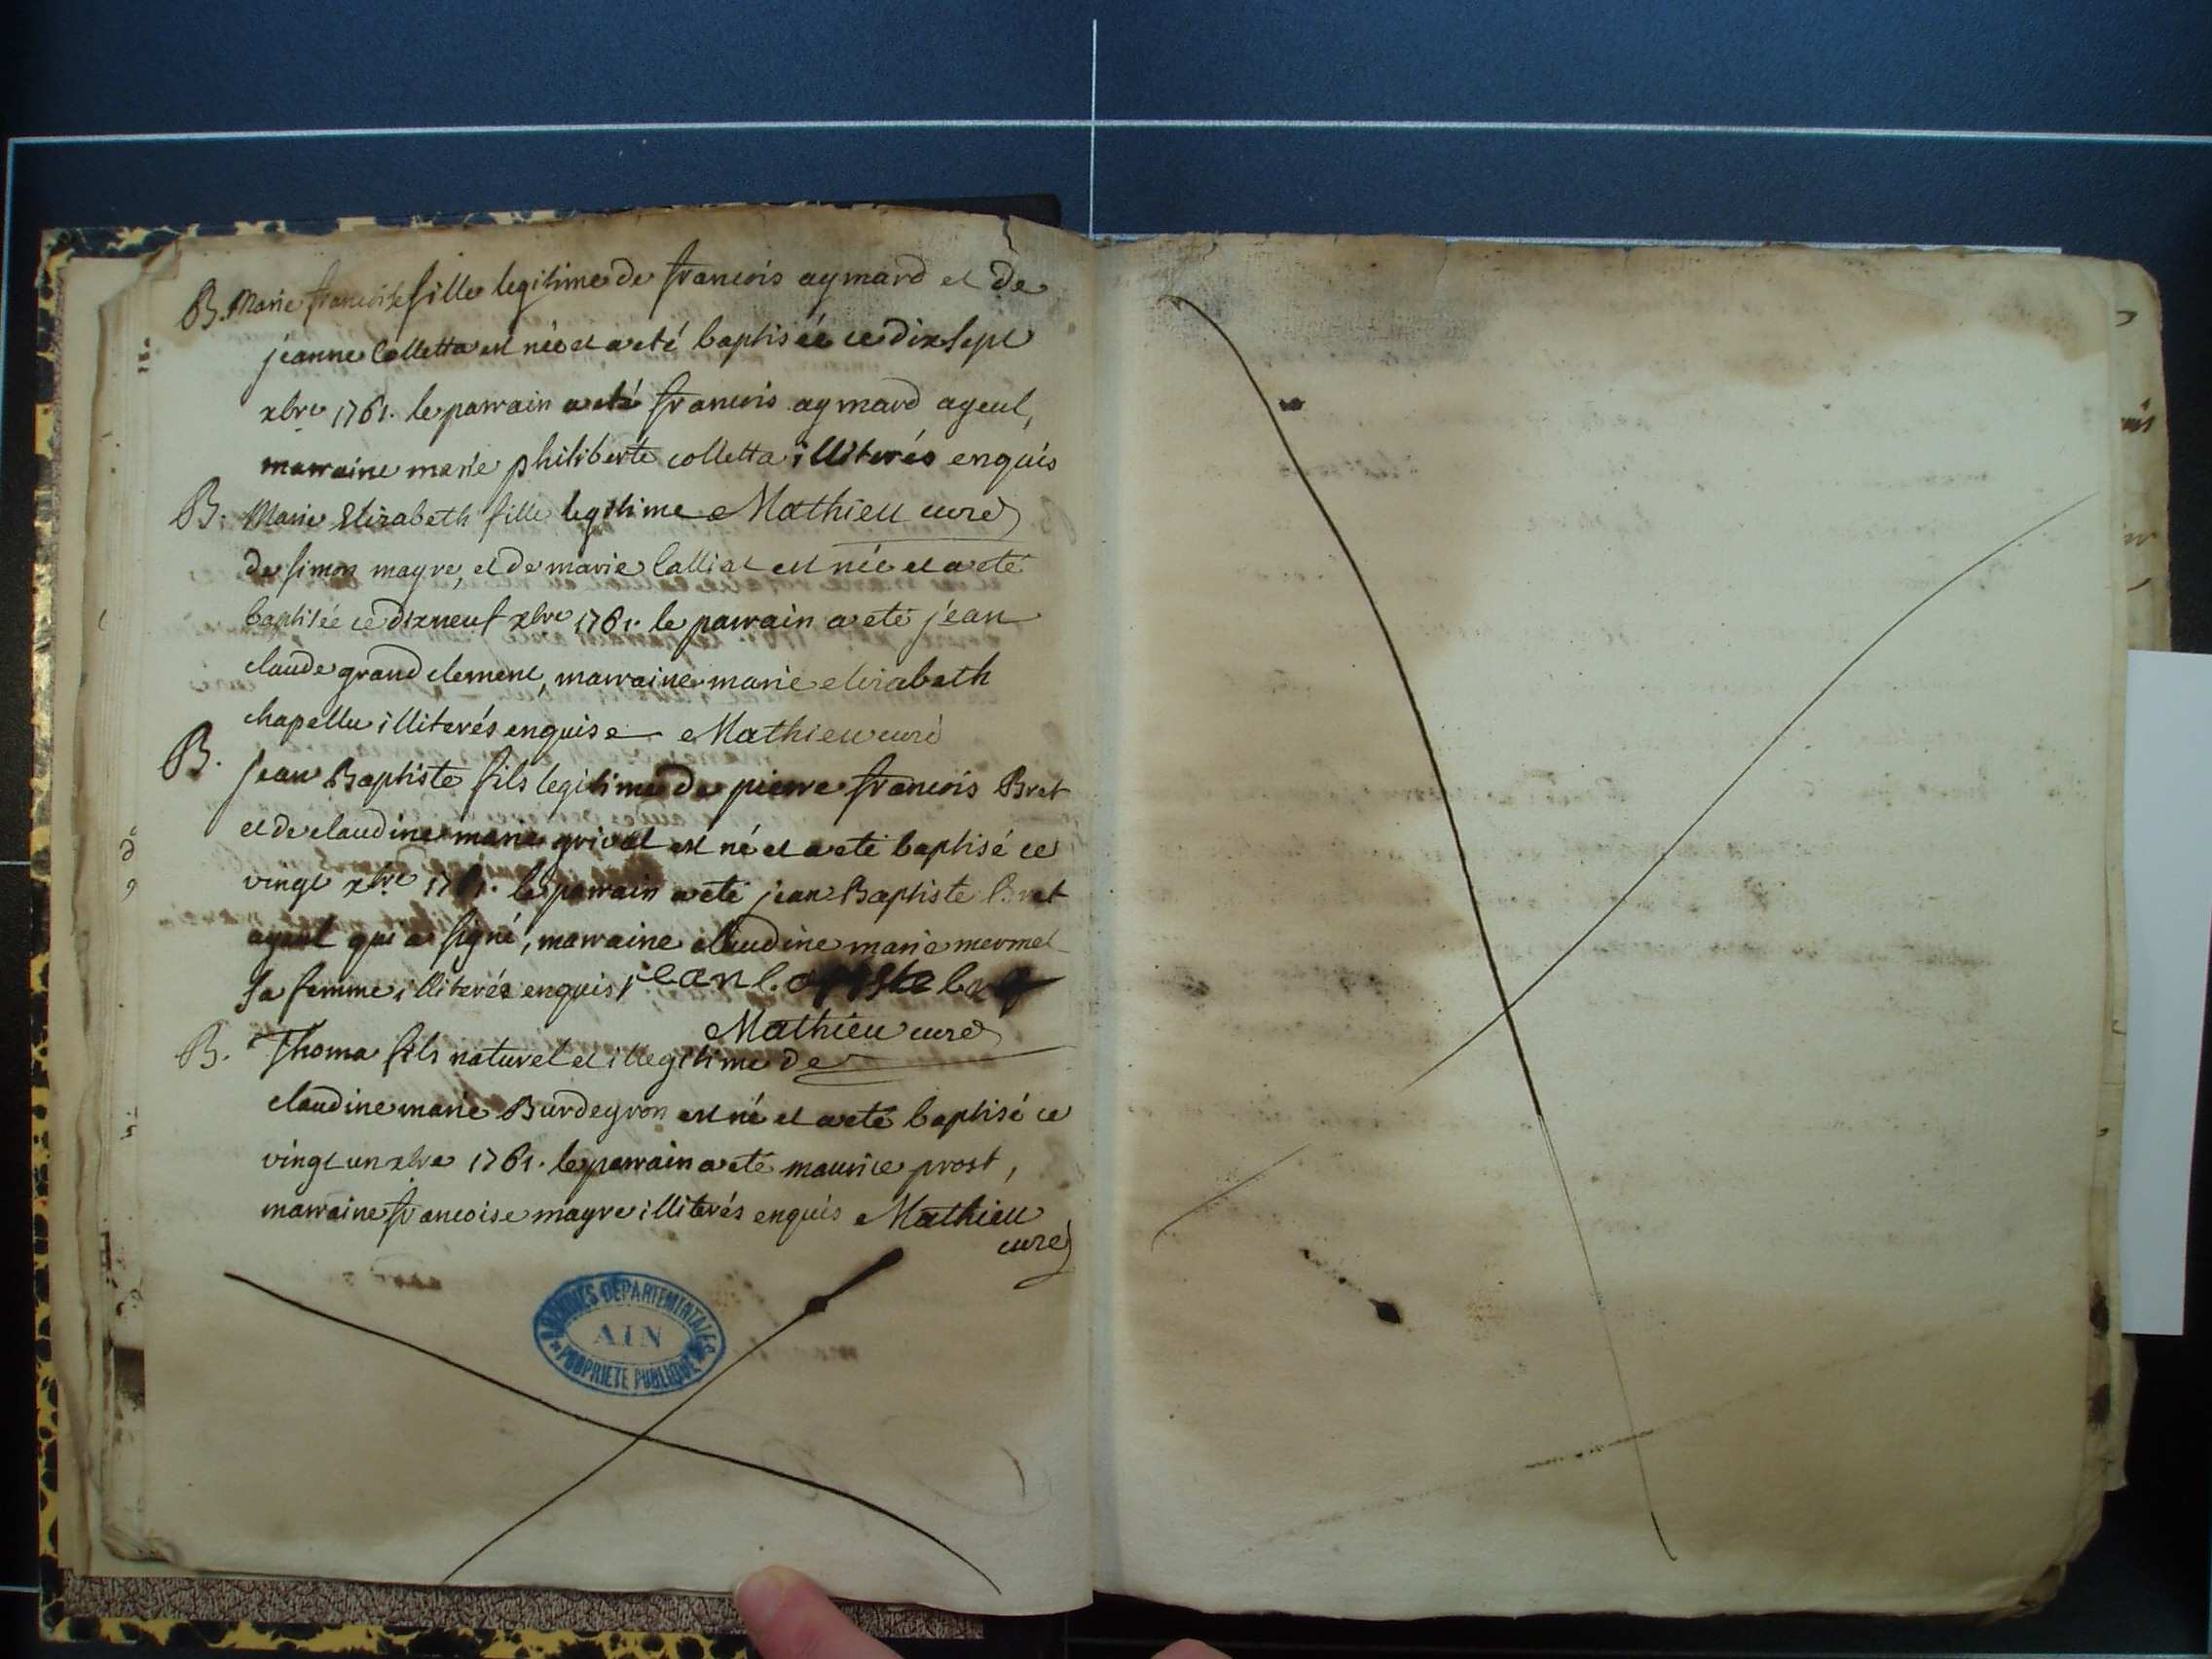 B. Marie francoise fille legitime de francois aymard et de
jeanne Colletta est née et a eté baptisée ce dix sept
xbre 1761. le parrain a eté francois aymard ayeul,
marraine marie philiberte colletta illiterés enquis
B. Marie Elizabeth fille legitime Mathieu curé
de simon mayre, et de marie Calliat est née et a eté
baptisée ce dixneuf xbre 1761. le parrain a eté jean
claude grand clement, marraine marie elizabeth
chapellu illiterés enquise Mathieu curé
B. jean Baptiste fils legitime de pierre francois Bret
et de claudine marie grivat est né et a eté baptisé ce
vingt xbre 1761. le parrain a eté jean Baptiste Bret
ayeul qui a signé, marraine claudine marie mermet
sa femme illiterés enquis jean baptiste
Mathieu curé
B. Thoma fils naturel et illegitime de
claudine marie Burdeyron est né et a eté baptisé ce
vingt un xbre 1761. le parrain a eté maurice prost,
marraine francoise mayre illiterés enquis Mathieu
curé
ARCHIVES DÉPARTEMENTALES
AIN
PROPRIÉTÉ PUBLIQUE